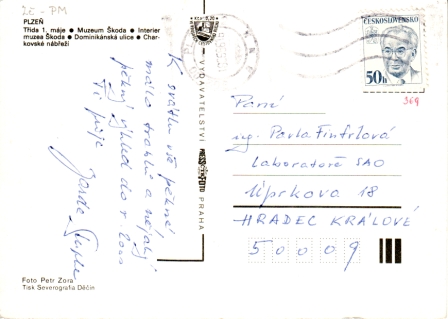 ZE - PM
PLZEŇ
Třída 1. máje ● Muzeum Škoda ● Interier
muzea Škoda ● Dominikánská ulice ● Char-
kovské nábřeží
K svátku vše pěkné,
málo trablů a nějaký
pěkný výhled do r. 2000
Ti přeje
Jarda
Foto Petr Zora
Tisk Severografia Děčín
VYDAVATELSTVÍ PRAHA
ČESKOSLOVENSKO
50h
369
Paní
ing. Pavla Finfrlová
Laboratoře SAO
Úprkova 18
HRADEC KRÁLOVÉ
50009